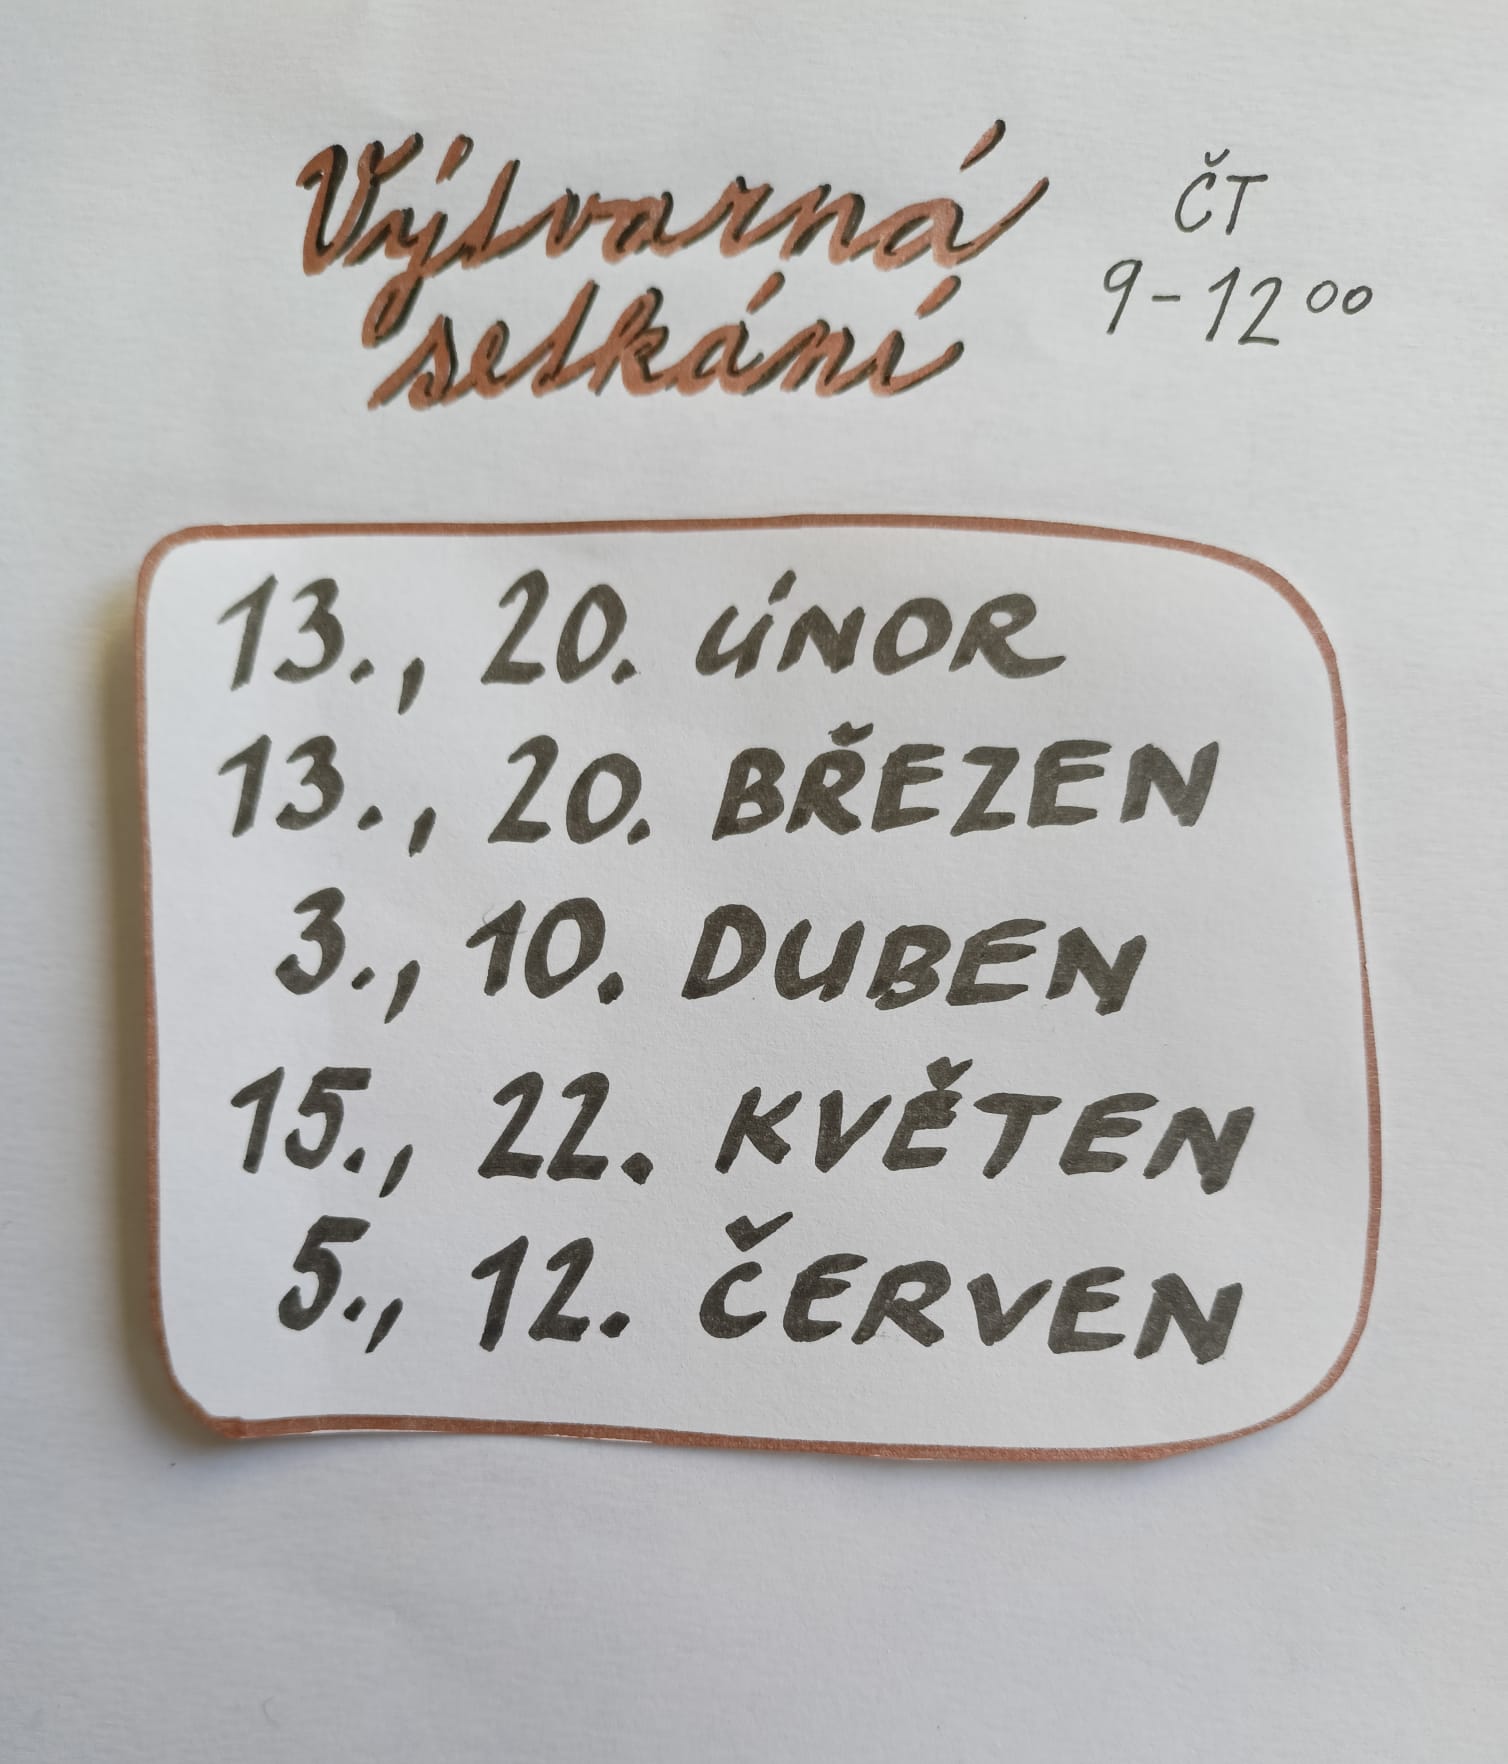 Výtvarná
setkání
ČT
9-12⁰⁰
13., 20. ÚNOR
13., 20. BŘEZEN
3., 10. DUBEN
15., 22. KVĚTEN
5., 12. ČERVEN